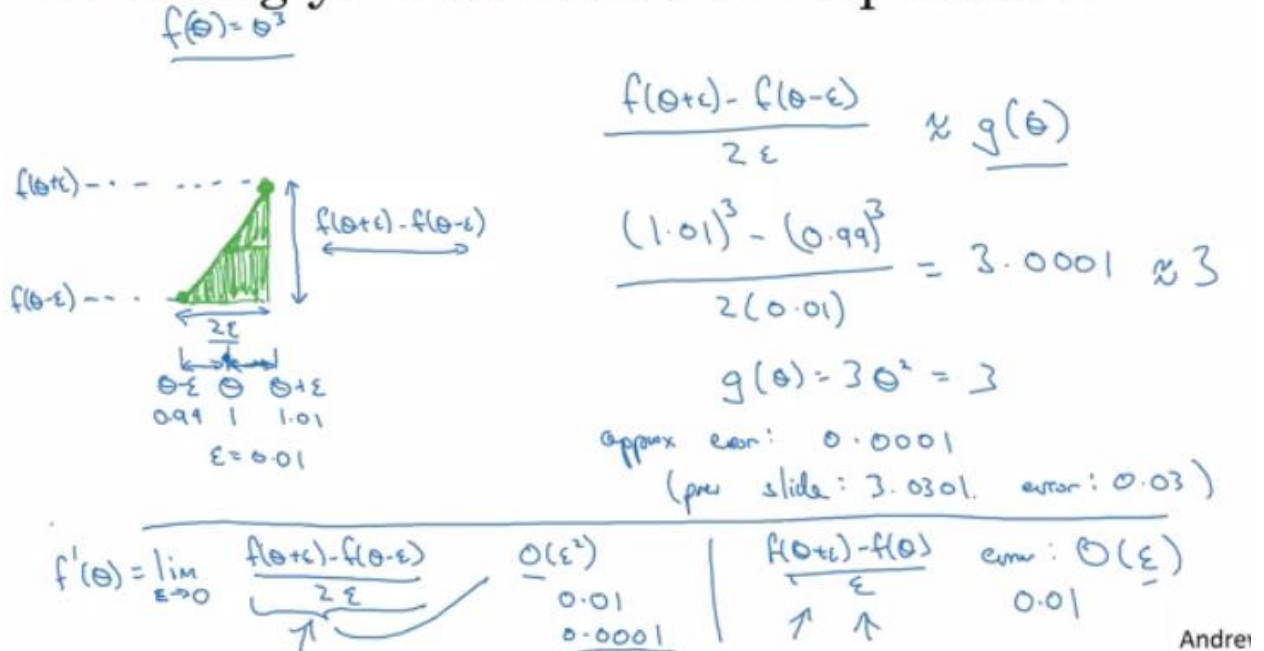 f(θ) = θ³
f(θ+ε) - f(θ-ε)
2ε
≈ g(θ)
f(θ+ε)
f(θ+ε) - f(θ-ε)
f(θ-ε)
2ε
θ-ε θ θ+ε
0.99 1 1.01
ε = 0.01
(1.01)³ - (0.99)³
2(0.01)
= 3.0001 ≈ 3
g(θ) = 3θ² = 3
approx error: 0.0001
(prev slide: 3.0301. error: 0.03)
f'(θ) = lim
ε→0
f(θ+ε) - f(θ-ε)
2ε
O(ε²)
0.01
0.0001
f(θ+ε) - f(θ)
ε
error: O(ε)
0.01
Andrew